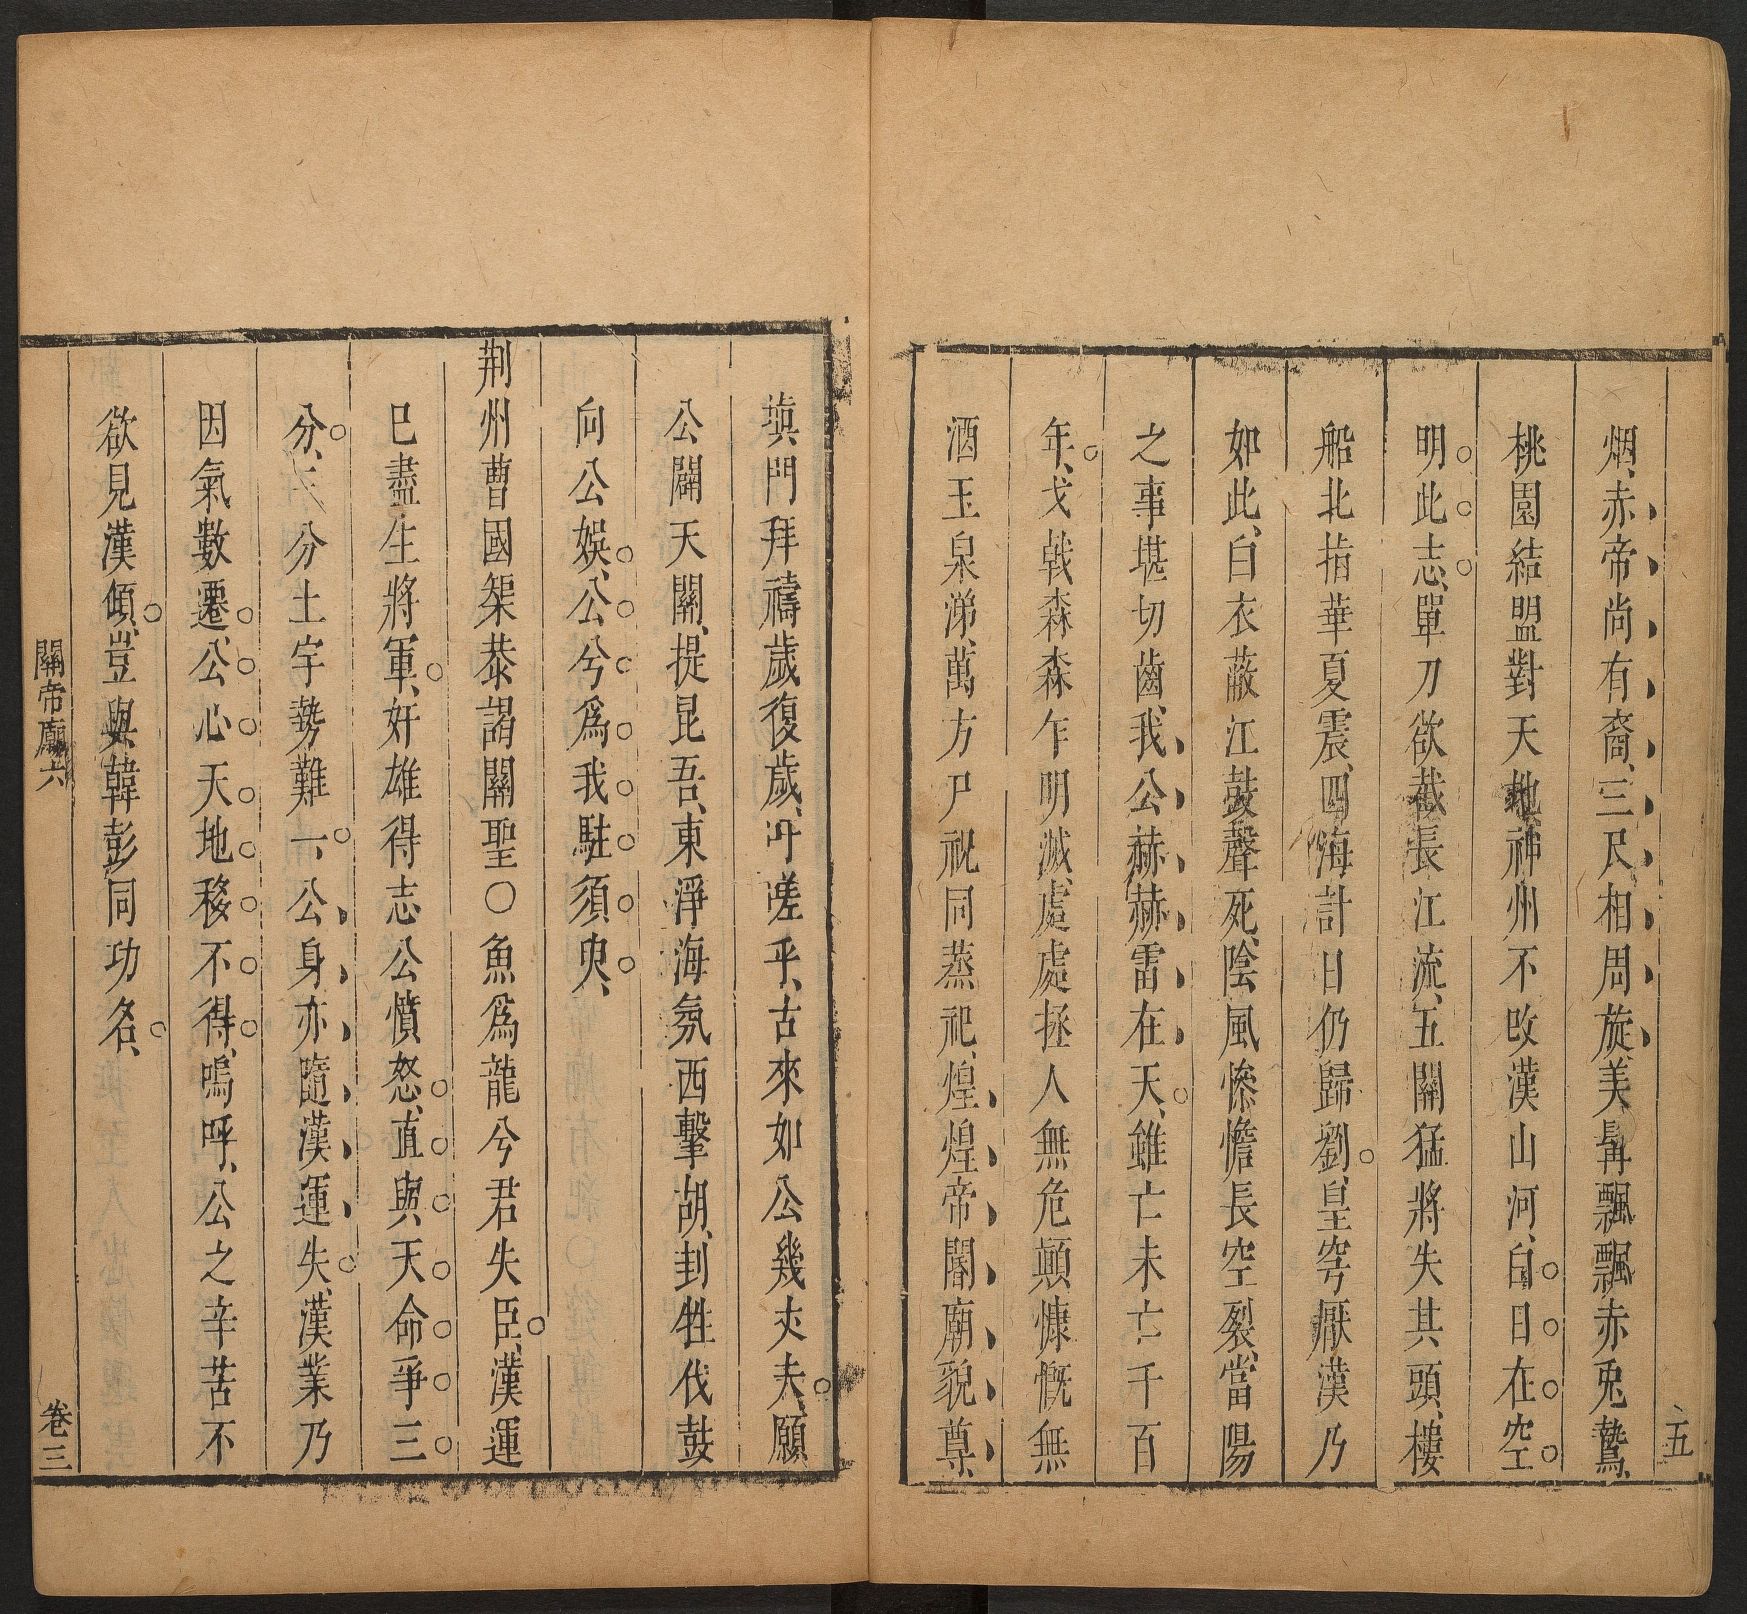 五
烟、赤帝尚有裔、三尺相周旋、美髯飄飄赤兎騺、
桃園結盟對天地神州不改漢山河、白日在空
明此志、單刀欲截長江流、五關猛將失其頭、樓
船北指華夏震、四海計日仍歸劉、皇穹厭漢乃
如此、白衣蔽江鼓聲死、陰風慘憺長空裂、當陽
之事堪切齒、我公赫赫雷在天、雖亡未亡千百
年、戈戟森森乍明滅、處處拯人無危顛慷慨無
酒玉泉涕、萬方尸祝同蒸祀、煌煌帝閽廟貌尊、
塡門拜禱歲復歲、吁嗟乎、古來如公幾丈夫、願
公闢天關、提昆吾、東淨海氛西擊胡、刲牲伐鼓
向公娛、公兮爲我駐須臾、
荆州曹國榘恭謁關聖○魚爲龍兮君失臣、漢運
已盡生將軍、奸雄得志公憤怒、直與天命爭三
分、三分土宇勢難一、公身亦隨漢運失、漢業乃
因氣數遷、公心天地移不得、嗚呼、公之辛苦不
欲見漢傾、豈與韓彭同功名、
關帝廟六
卷三